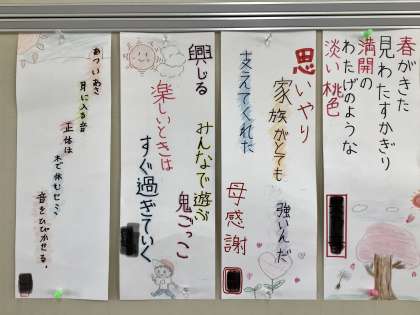 春がきた
見わたすかぎり
満開の
わたげのような
淡い桃色
思いやり
家族がとても
強いんだ
支えてくれた
母感謝
興じる
みんなで遊ぶ
鬼ごっこ
楽しいときは
すぐ過ぎていく
あつい朝
耳に入る音
正体は
木で休むセミ
音をひびかせる。